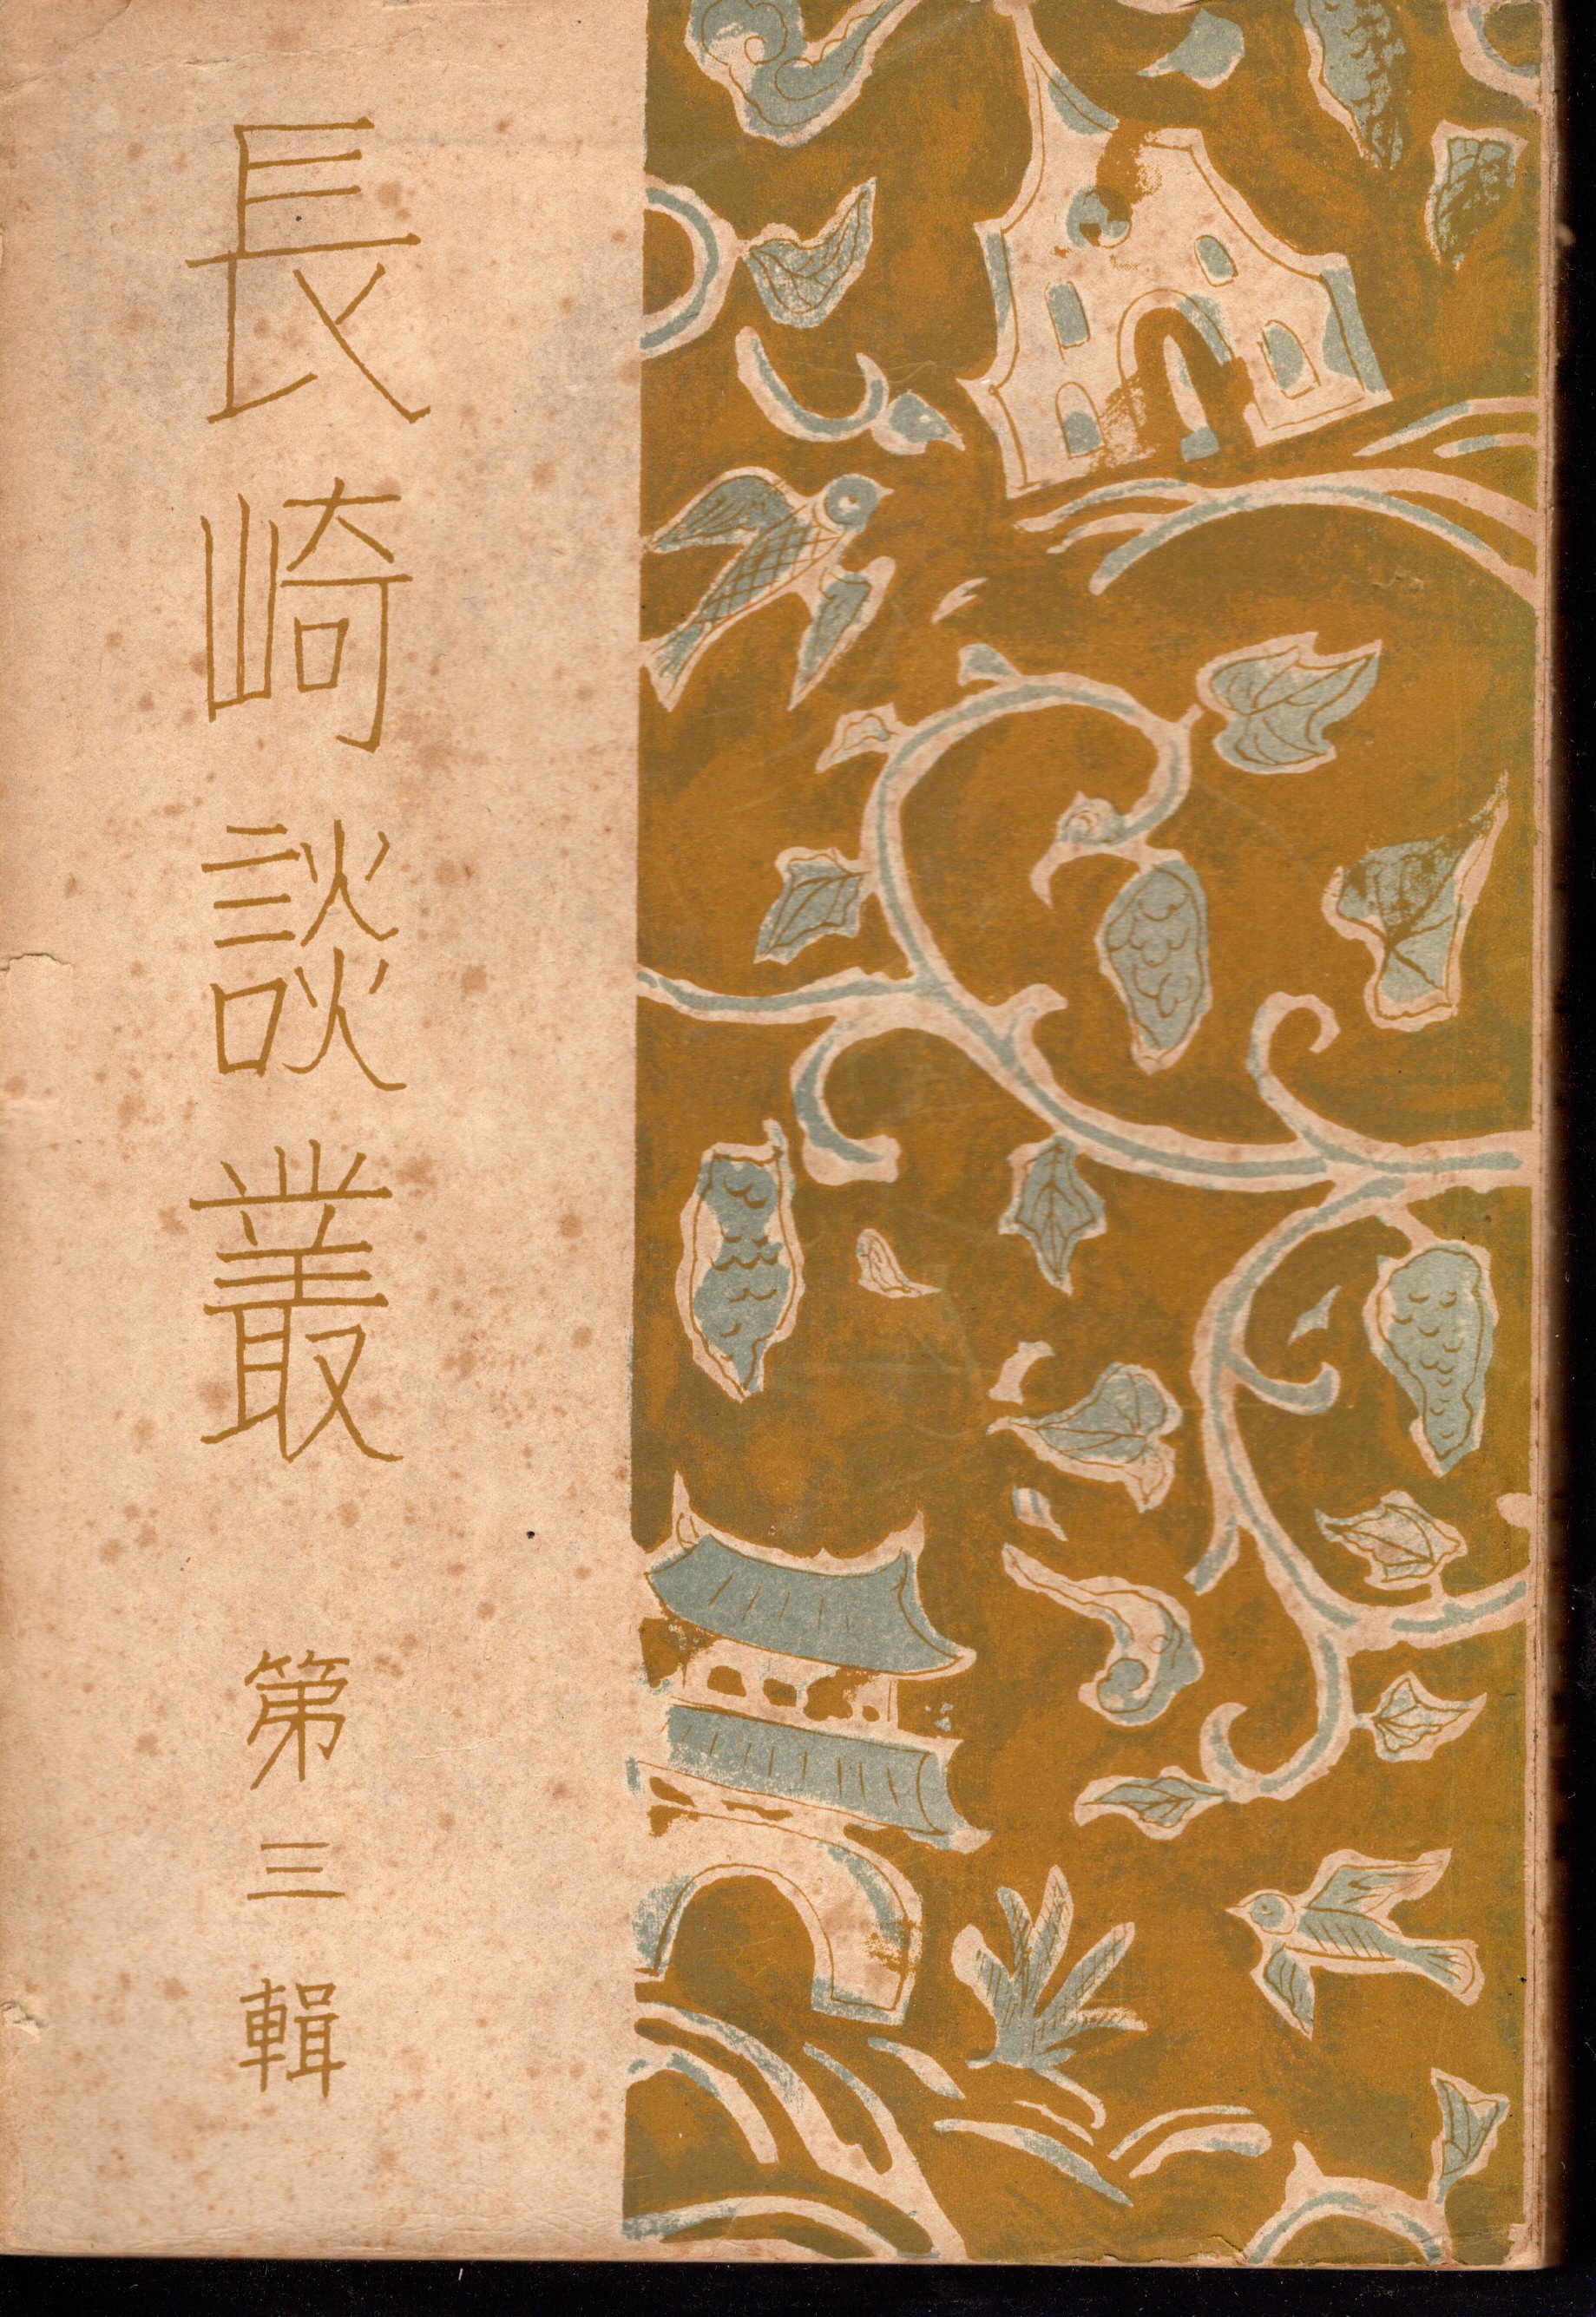 長崎談叢 第三輯